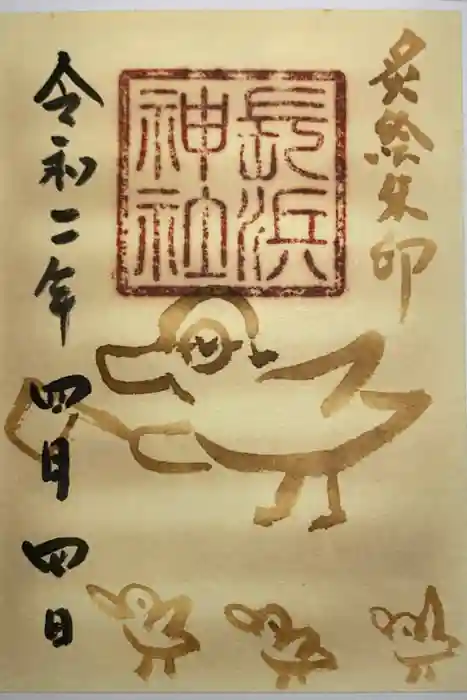 炙祭朱印
長浜
神社
令和二年
四月
四日